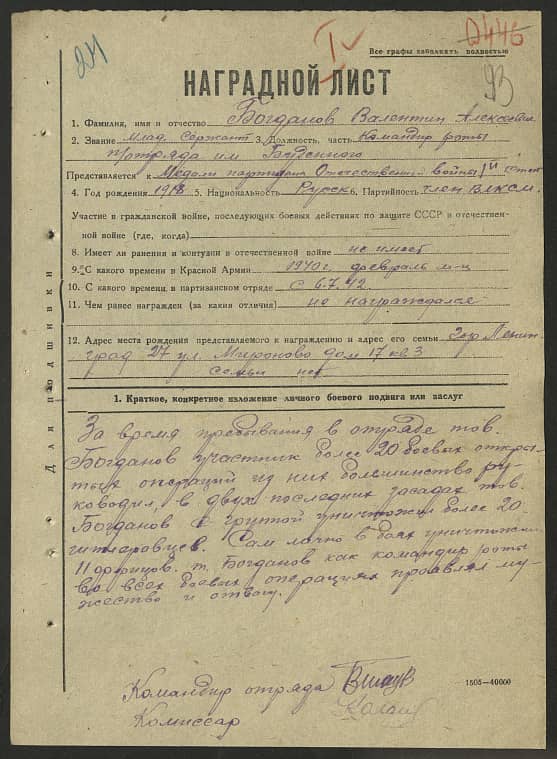 24
I
0446
Все графы заполнять полностью
93
НАГРАДНОЙ ЛИСТ
1. Фамилия, имя и отчество Богданов Валентин Алексеевич
2. Звание млад. Сержант 3. Должность, часть Командир роты
п/отряда им Буденного
Представляется к Медали партизана Отечественной войны II степ
4. Год рождения 1918 5. Национальность Русск 6. Партийность член ВЛКСМ.
Участие в гражданской войне, последующих боевых действиях по защите СССР в отечествен-
ной войне (где, когда)
8. Имеет ли ранения и контузии в отечественной войне не имеет
9. С какого времени в Красной Армии 1940г. февраль м-ц
10. С какого времени в партизанском отряде С 6.7.42
11. Чем ранее награжден (за какия отличия) не награждался
12. Адрес места рождения представляемого к награждению и адрес его семьи гор Ленин-
град 27 ул. Миронова дом 17 кв 3
Семьи нет
Для подшивки
1. Краткое, конкретное изложение личного боевого подвига или заслуг
За время пребывания в отряде тов.
Богданов участник более 20 боевых откры-
тых операций из них большинство ру-
ководил, в двух последних засадах тов.
Богданов с группой уничтожил более 20
гитлеровцев. Сам лично в боях уничтожил
11 фрицов. т. Богданов как командир роты
во всех боевых операциях проявлял му-
жество и отвагу.
Командир отряда
Комиссар
1505-40000